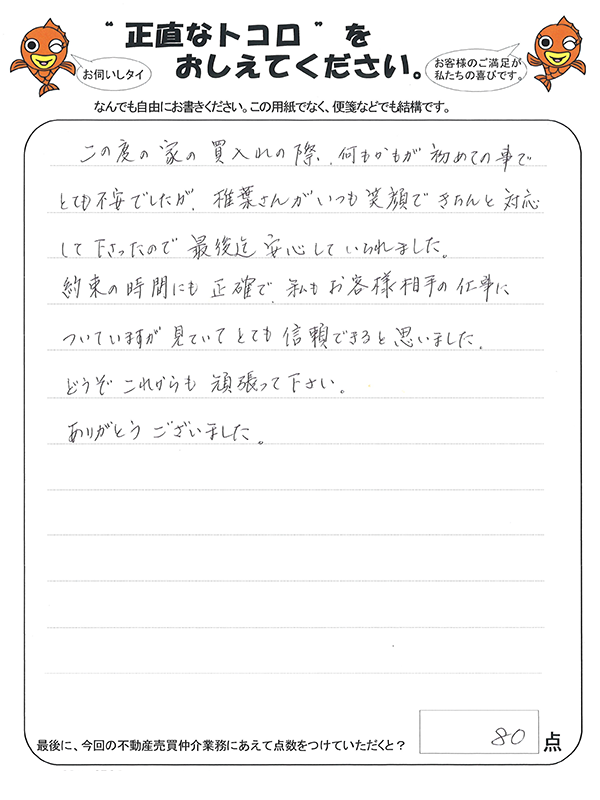 “正直なトコロ”を
おしえてください。
お伺いしタイ
お客様のご満足が
私たちの喜びです。
なんでも自由にお書きください。この用紙でなく、便箋などでも結構です。
この度の家の買入れの際、何もかもが初めての事で
とても不安でしたが、椎葉さんがいつも笑顔できちんと対応
して下さったので最後迄安心していられました。
約束の時間にも正確で、私もお客様相手の仕事に
ついていますが見ていてとても信頼できると思いました。
どうぞこれからも頑張って下さい。
ありがとうございました。
最後に、今回の不動産売買仲介業務にあえて点数をつけていただくと？
80点